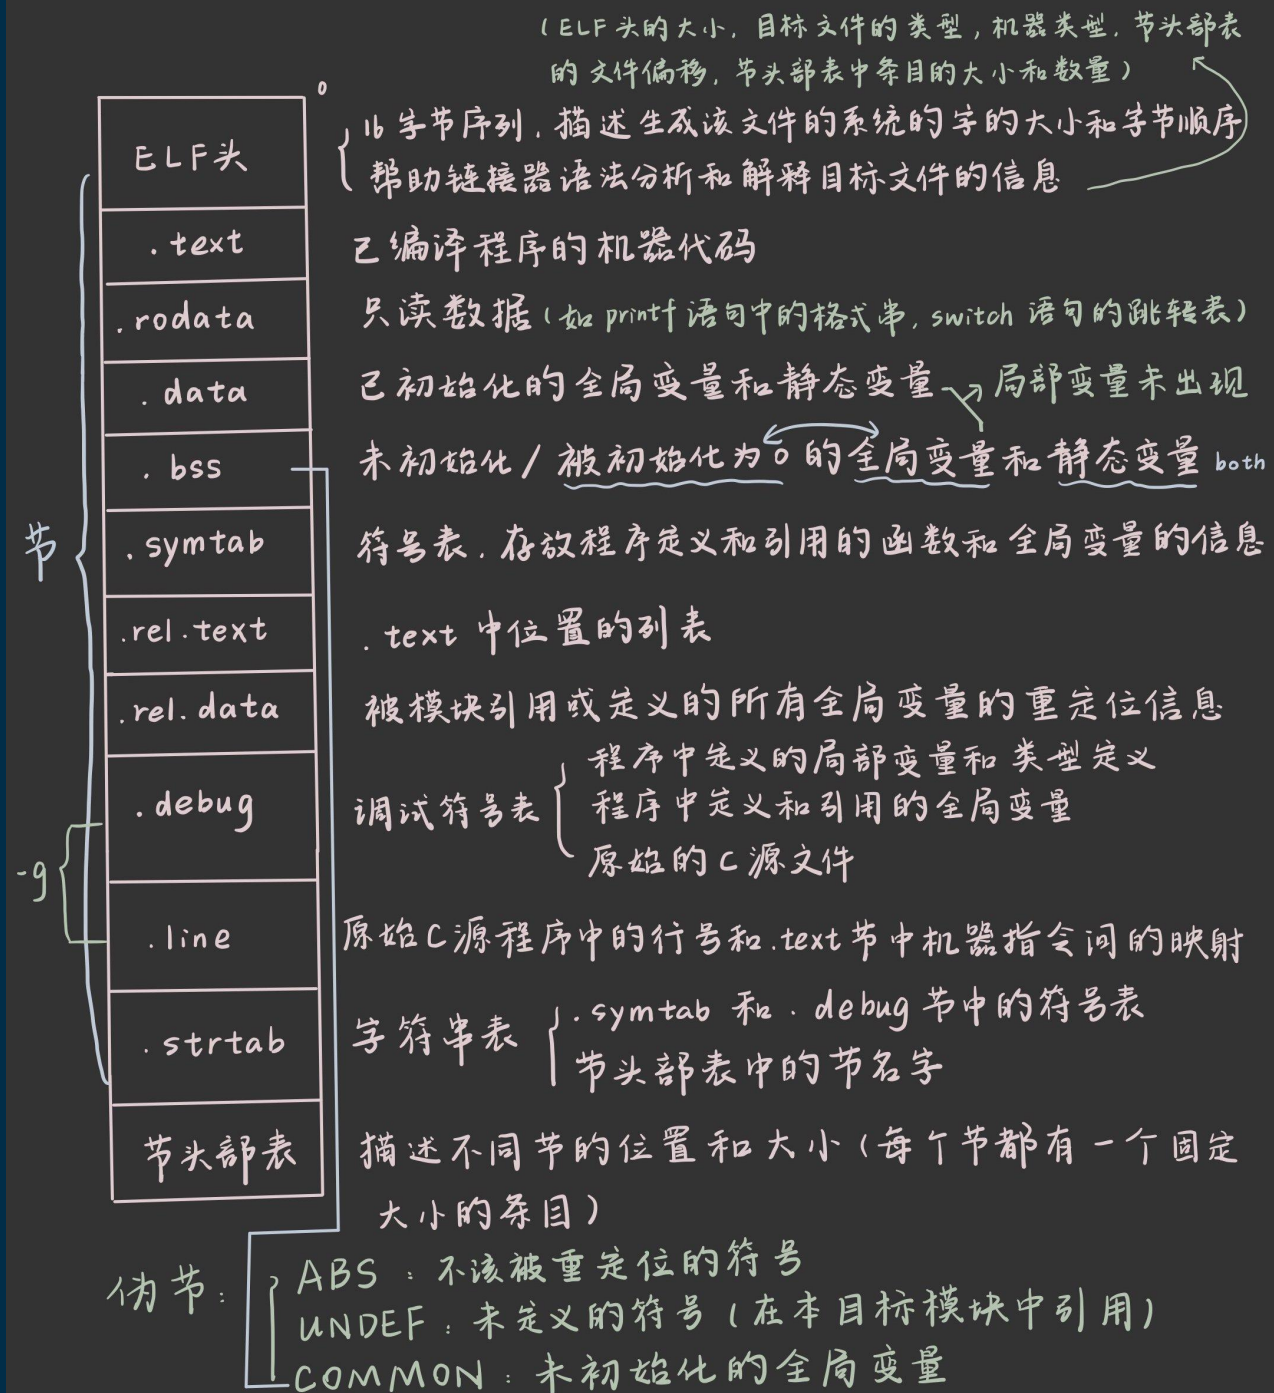 (ELF头的大小, 目标文件的类型, 机器类型, 节头部表
的文件偏移, 节头部表中条目的大小和数量)
0
ELF头
16字节序列, 描述生成该文件的系统的字的大小和字节顺序
帮助链接器语法分析和解释目标文件的信息
.text
已编译程序的机器代码
.rodata
只读数据(如printf语句中的格式串, switch语句的跳转表)
.data
已初始化的全局变量和静态变量 局部变量未出现
.bss
未初始化/被初始化为0的全局变量和静态变量 both
节
.symtab
符号表, 存放程序定义和引用的函数和全局变量的信息
.rel.text
.text中位置的列表
.rel.data
被模块引用或定义的所有全局变量的重定位信息
.debug
调试符号表
程序中定义的局部变量和类型定义
程序中定义和引用的全局变量
原始的C源文件
-g
.line
原始C源程序中的行号和.text节中机器指令间的映射
.strtab
字符串表
.symtab和.debug节中的符号表
节头部表中的节名字
节头部表
描述不同节的位置和大小(每个节都有一个固定
大小的条目)
伪节:
ABS:不该被重定位的符号
UNDEF:未定义的符号(在本目标模块中引用)
COMMON:未初始化的全局变量